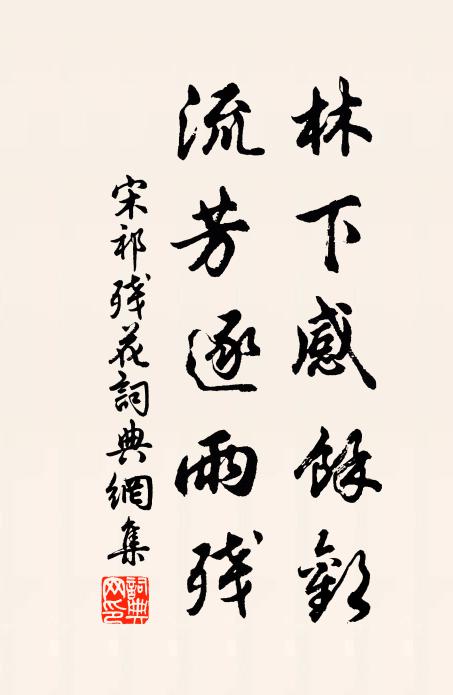 林下感餘歡
流芳逐雨殘
宋祁殘花詞典網集
詞典网印